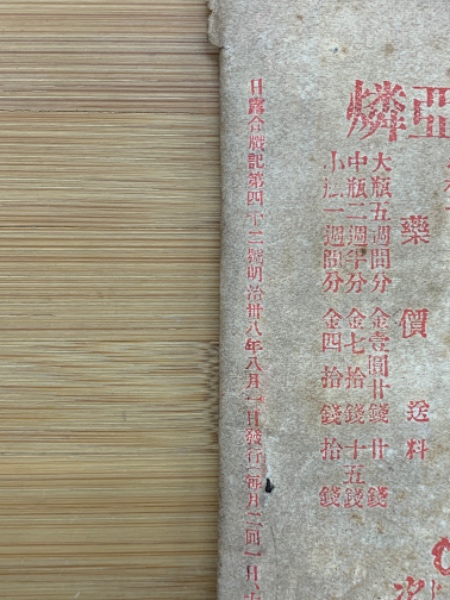 亞燐
藥價 送料
大瓶五週間分 金壹圓廿錢 廿錢
中瓶二週半分 金七拾錢 十五錢
小瓶一週間分 金四拾錢 拾錢
日露合戰記第四十二號明治卅八年八月一日發行(每月三回一日、十